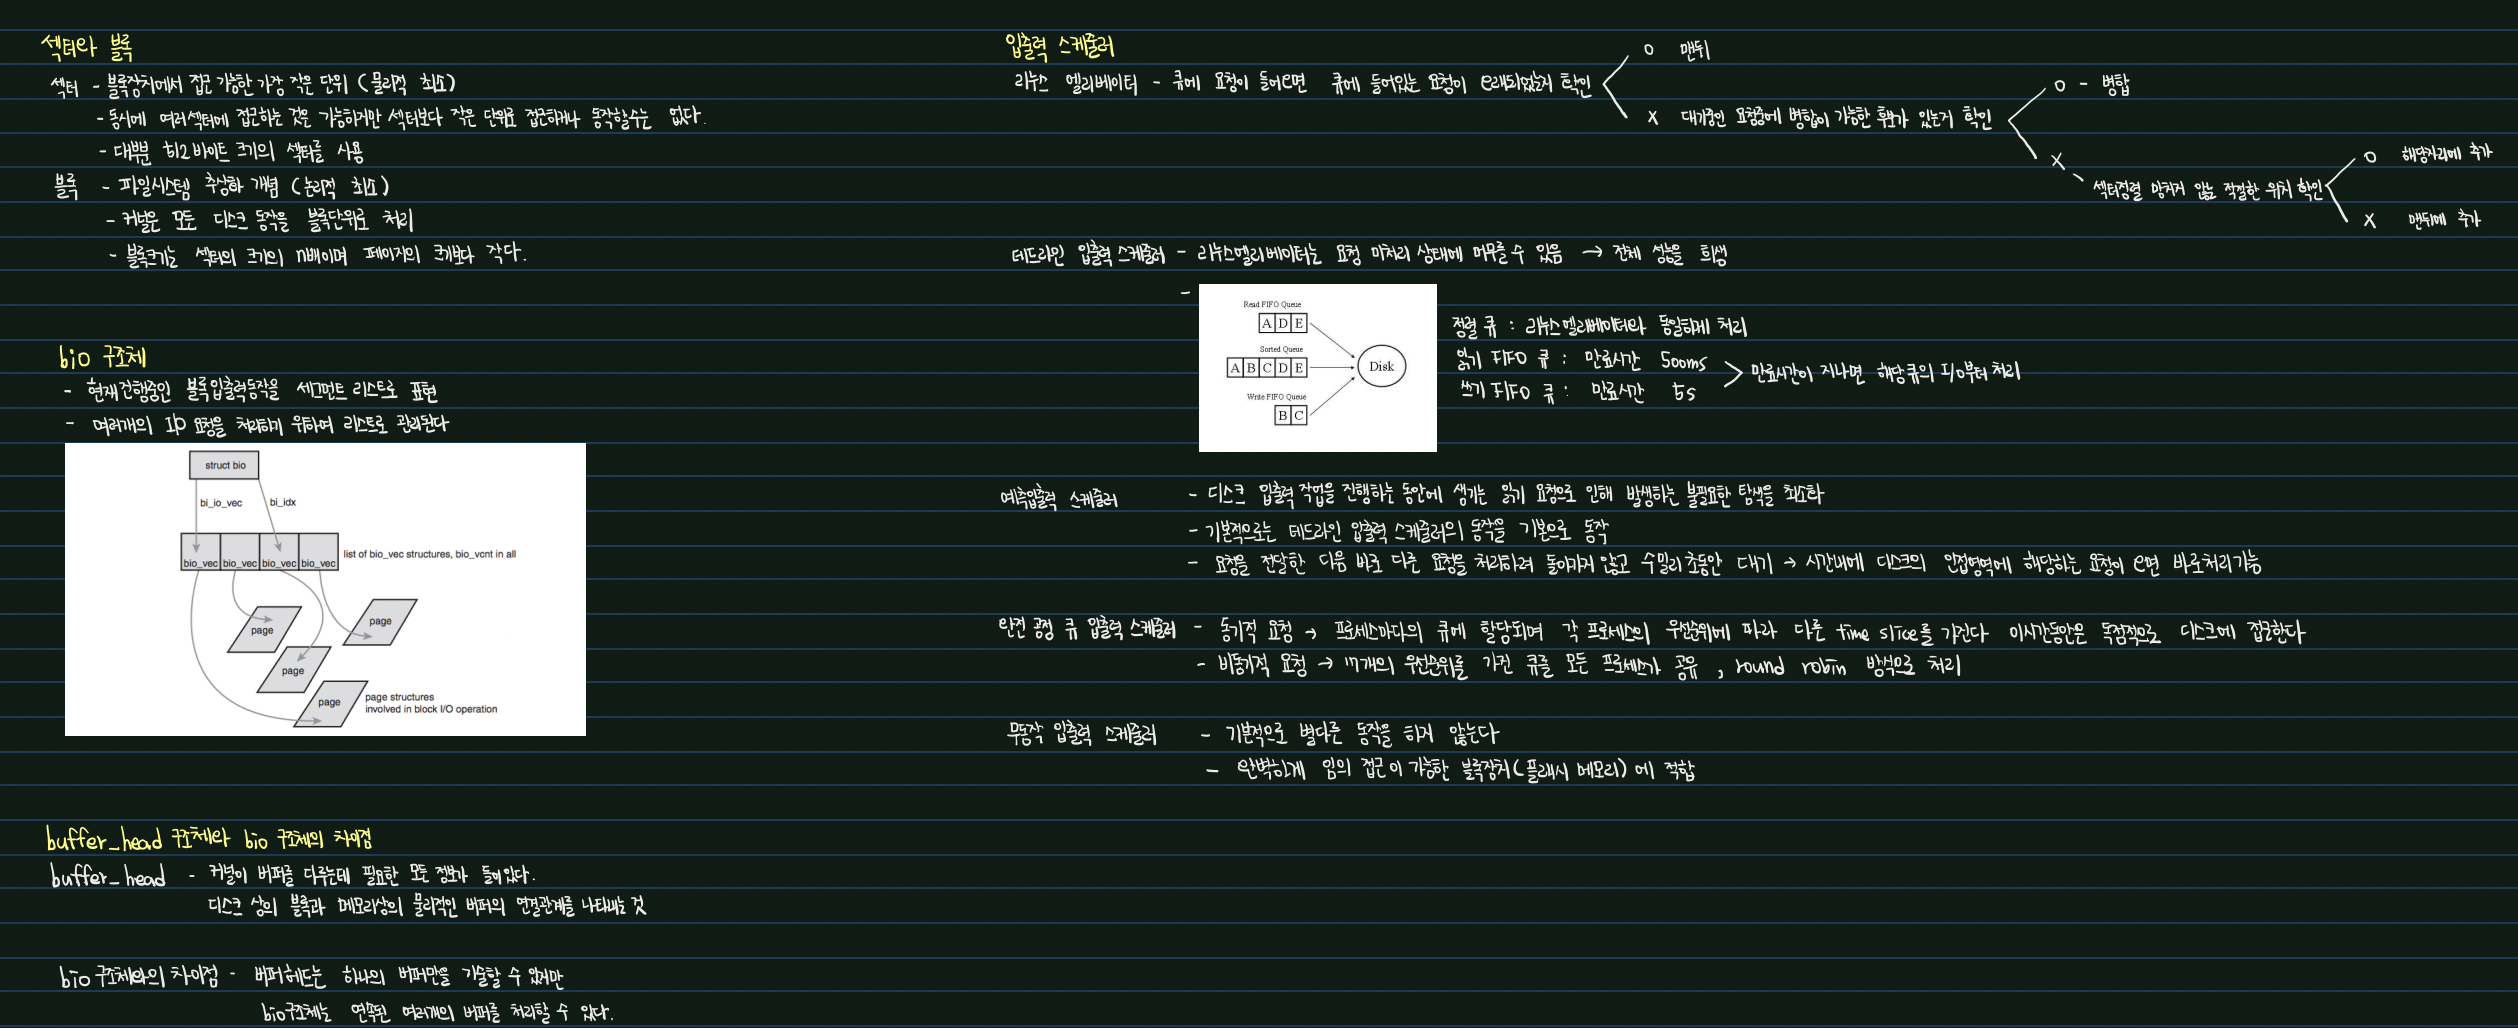 섹터와 블록
섹터 - 블록장치에서 접근 가능한 가장 작은 단위 (물리적 최소)
- 동시에 여러섹터에 접근하는 것은 가능하지만 섹터보다 작은 단위로 접근하거나 동작할수는 없다.
- 대부분 512바이트 크기의 섹터를 사용
블록 - 파일시스템 추상화 개념 (논리적 최소)
- 커널은 모든 디스크 동작을 블록단위로 처리
- 블록크기는 섹터의 크기의 n배이며 페이지의 크기보다 작다.
bio 구조체
- 현재진행중인 블록입출력동작을 세그먼트 리스트로 표현
- 여러개의 I/O 요청을 처리하기 위하여 리스트로 관리된다
struct bio
bi_io_vec
bi_idx
bio_vec bio_vec bio_vec bio_vec
list of bio_vec structures, bio_vcnt in all
page
page
page
page
page structures
involved in block I/O operation
buffer_head 구조체와 bio 구조체의 차이점
buffer_head - 커널이 버퍼를 다루는데 필요한 모든 정보가 들어있다.
디스크 상의 블록과 메모리상의 물리적인 버퍼의 연결관계를 나타내는 것
bio 구조체와의 차이점 - 버퍼헤드는 하나의 버퍼만을 기술할 수 있지만
bio구조체는 연속된 여러개의 버퍼를 처리할 수 있다.
입출력 스케줄러
리누스 엘리베이터 - 큐에 요청이 들어오면 큐에 들어있는 요청이 오래되었는지 확인
O 맨뒤
X 대기중인 요청중에 병합이 가능한 후보가 있는지 확인
O - 병합
X - 섹터정렬 망치지 않는 적절한 위치 확인
O 해당자리에 추가
X 맨뒤에 추가
데드라인 입출력 스케줄러 - 리누스엘리베이터는 요청 미처리 상태에 머무를 수 있음 → 전체 성능을 희생
-
Read FIFO Queue
A D E
Sorted Queue
A B C D E
Write FIFO Queue
B C
Disk
정렬 큐 : 리누스엘리베이터와 동일하게 처리
읽기 FIFO 큐 : 만료시간 500ms
쓰기 FIFO 큐 : 만료시간 5s
만료시간이 지나면 해당큐의 I/O부터 처리
예측입출력 스케줄러 - 디스크 입출력 작업을 진행하는 동안에 생기는 읽기 요청으로 인해 발생하는 불필요한 탐색을 최소화
- 기본적으로는 데드라인 입출력 스케줄러의 동작을 기본으로 동작
- 요청을 전달한 다음 바로 다른 요청을 처리하려 돌아가지 않고 수밀리초동안 대기 → 시간내에 디스크의 인접영역에 해당하는 요청이 오면 바로처리가능
완전 공정 큐 입출력 스케줄러 - 동기적 요청 → 프로세스마다의 큐에 할당되며 각 프로세스의 우선순위에 따라 다른 time slice를 가진다 이시간동안은 독점적으로 디스크에 접근한다
- 비동기적 요청 → 17개의 우선순위를 가진 큐를 모든 프로세스가 공유, round robin 방식으로 처리
무동작 입출력 스케줄러 - 기본적으로 별다른 동작을 하지 않는다
- 완벽하게 임의 접근이 가능한 블록장치(플래시 메모리)에 적합